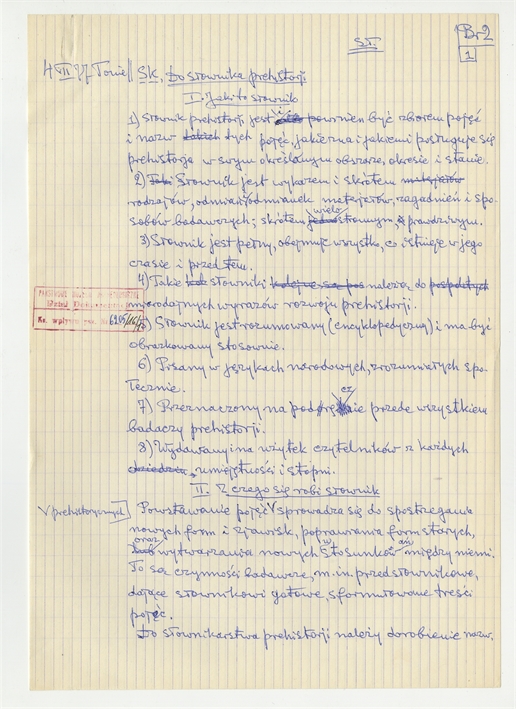 ST.
Br 2
1
4 VII 77 Toniell SK, Do słownika prehistorji
I. Jaki to słownik
1) Słownik prehistorji jest powinien być zbiorem pojęć
i nazw takich tych pojęć, jakie zna i jakiemi posługuje się
prehistorja w swym określonym obszarze, okresie i stanie.
2) Taki Słownik jest wykazem i skrótem materjałów
rodzajów, odmian/odmianek materjałów, zagadnień i spo-
sobów badawczych; skrótem jednostronnym, wielo prawdziwym.
3) Słownik jest pełny, obejmuje wszystko, co istnieje w jego
czasie i przed tem.
4) Takie słowniki kolejne są pos należą do pospolitych
miarodajnych wyrazów rozwoju prehistorji.
PAŃSTWOWE MUZEUM
Dział Dokumentacji
Ks. wpływu poz. Nr 6205/
5) Słownik jest rozumowany (encyklopedyczny) i ma być
obrazkowany stosownie.
6) Pisany w językach narodowych, zrozumiałych spo-
łecznie.
7) Przeznaczony na podręcznie cz przede wszystkiem
badaczy prehistorji.
8) Wydawany na użytek czytelników z każdych
dziedzin, umiejętności i stopni.
II. Z czego się robi słownik
V prehistorycznych] Powstawanie pojęć V sprowadza się do spostregania
nowych form i zjawisk, poprawiania form starych,
oraz
wytwarzania nowych stosunków między niemi.
To są czynności badawcze, m.in. przedsłownikowe,
dające słownikowi gotowe, sformułowane treści
pojęć.
Do słownikarstwa prehistorji należy dorobienie nazw.